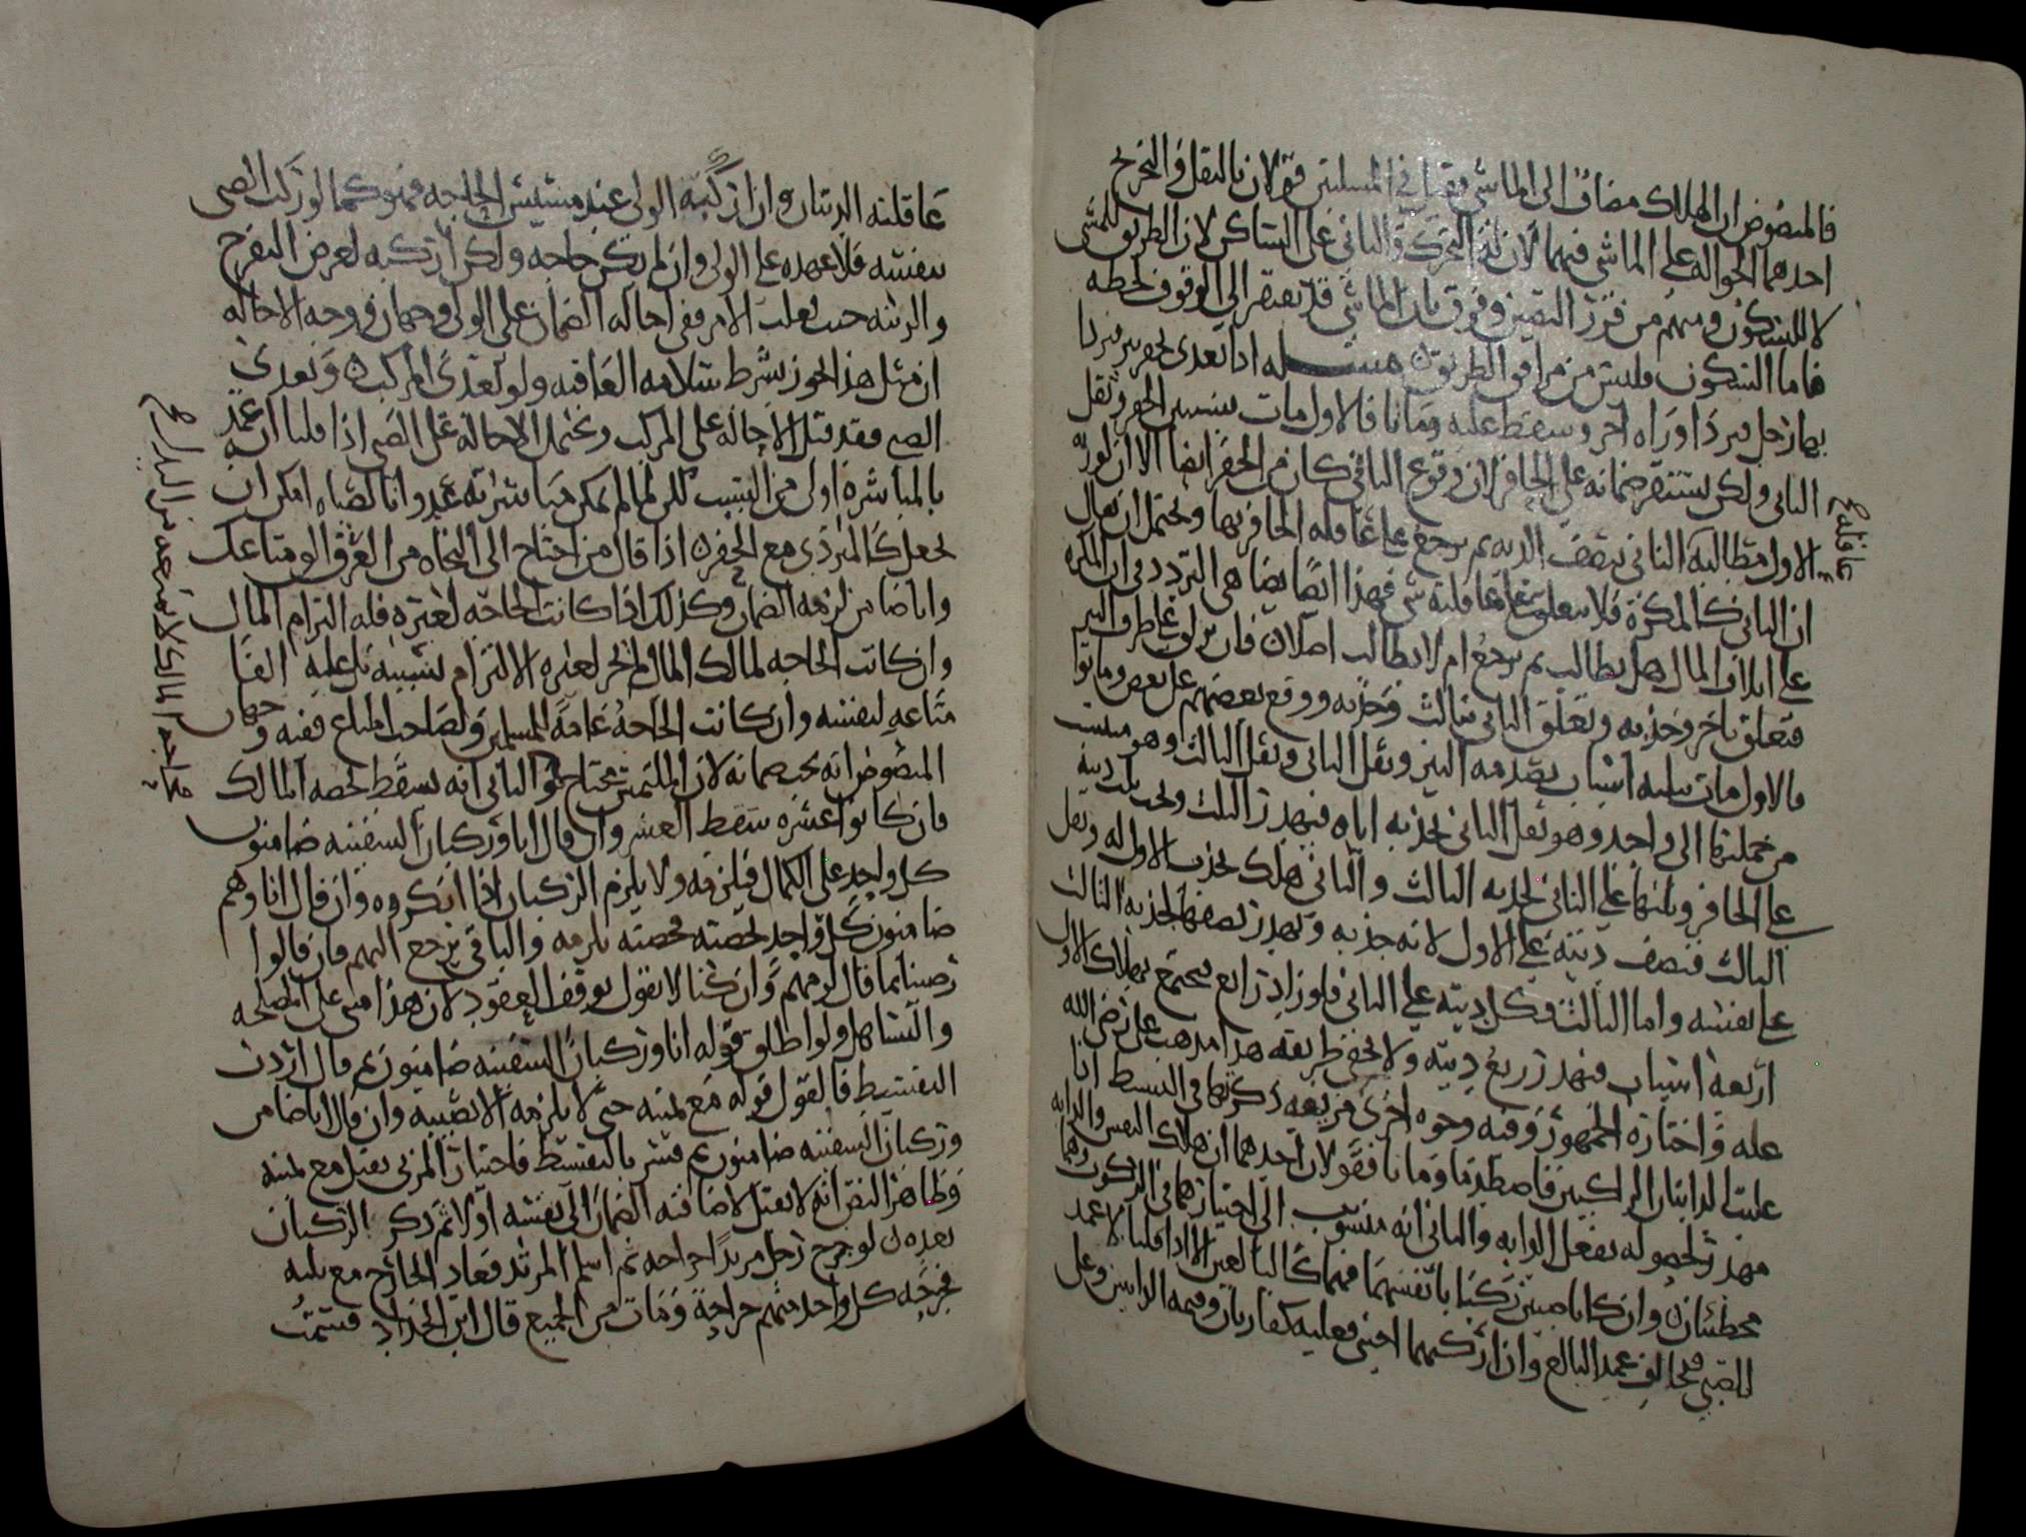 فالمنصوص ان الهلاك مضاف الى الماشي فقيل في المسلتين قولان بالنقل والتخريج
احدهما الحوالة على الماشي فيهما لان له التحرك والثاني على الساكن لان الطريق للمشي
لا للسكون ومنهم من قرر النصين وفرق بان الماشي قد يفتقر الى الوقوف لحظه
فاما السكون فليس من مرافق الطريق مسله اذا تعدى بحفر بير فردا
بها رجل فردا وراه اخر وسقط عليه وماتا فالاول مات بسبب الحفر وثقل
الثاني ولكن يستقر ضمانه على الحافر لان وقوع الثاني كان من الحفر ايضا الا ان لورثه
الاول مطالبة الثاني بنصف الديه ثم يرجع على عاقله الحافر بها ويحتمل ان يقال
عاقلة
ان الثاني كالمكره فلا يتعلق به وبعاقلته شي فهذا ايضا يضاهي التردد في ان المكره
على اتلاف المال هل يطالب ثم يرجع ام لا يطالب اصلا فان تزلق على طرف البير
فتعلق باخر وجذبه وتعلق الثاني بثالث وجذبه ووقع بعضهم على بعض وماتوا
فالاول مات بثلثه اسباب بصدمه البير وثقل الثاني وثقل الثالث وهو منتسب
من جملتها الى واحد وهو ثقل الثاني لجذبه اياه فيهدر الثلث ويجب ثلث ديته
على الحافر وثلثها على الثاني لجذبه الثالث والثاني هلك بجذب الاول له وثقل
الثالث فنصف ديته على الاول لانه جذبه ويهدر نصفها لجذبه الثالث
على نفسه واما الثالث فكل ديته على الثاني فلو زاد رابع فيجتمع بهلاك الاول
اربعة اسباب فيهدر ربع ديته ولا يخفى طريقه هذا مذهب على رضي الله
عله واختاره الجمهور وفيه وجوه اخرى غريبه ذكرتها في البسيط اذا
غلبت الدابتان الراكبين فاصطدما وماتا فقولان احدهما ان هلاك النفس والدابه
مهدر لحصوله بفعل الدابه والثاني انه منسوب الى اختيارهما في الركوب وهما
مخطئان وان كانا صبيين ركبا بانفسهما فهما كالبالغين الا اذا قلنا لا عمد
للصبي فيخالف عمد البالغ وان اركبهما اجنبي فعليه كفارتان وقيمه الدابتين وعلى
عاقلته الديتان وان اركبه الولي عند مسيس الحاجه فهو كما لو ركب الصبي
بنفسه فلا عهده على الولي وان لم تكن حاجه ولكن اركبه لغرض التفرج
والزينه حيث يغلب الامر ففي احاله الضمان على الولي وجهان ووجه الاحاله
ان مثل هذا يجوز بشرط سلامه العاقبه ولو تعدى المركب وتعدى
الصبي فقد قيل الاحالة على المركب وتحتمل الاحالة على الصبي اذا قلنا ان له عمد
بالمباشره اولى من التسبب لكن لما لم يكن مباشرته عدوانا لصباه امكن ان
يجعل كالمتردي مع الحفره اذا قال من احتاج الى النجاه من الغرق الق متاعك
وانا ضامن لزمه الضمان وكذلك اذا كانت الحاجه لغيره فله التزام المال
وان كانت الحاجه لمالك المال لم يجز لغيره الالتزام بسببه بل عليه القا
متاعه لنفسه وان كانت الحاجة عامة للمسلمين ولصاحب المتاع ففيه وجهان
المنصوص انه يجب ضمانه لان الملتمس محتاج والثاني انه يسقط بحصه المالك
فان كانوا عشره سقط العشر وان قال انا وركبان السفينه ضامنون
كل واحد على الكمال فيلزمه ولا يلزم الركبان اذا انكروه وان قال انا وهم
ضامنون كل واحد بحصته فحصته تلزمه والباقي يرجع اليهم فان قالوا
رضينا بما قال لزمهم وان كنا لا نقول بوقف العقود لان هذا مبنى على المصلحه
والتساهل ولو اطلق قوله انا وركبان السفينه ضامنون ثم قال اردت
التقسيط فالقول قوله مع يمينه حتى لا يلزمه الا نصيبه وان قال انا ضامن
وركبان السفينه ضامنون ثم فسر بالتقسيط فاختيار المزني يقبل مع يمينه
وظاهر النص انه لا يقبل لاضافته الضمان الى نفسه اولا ثم ذكر الركبان
بعده لو جرح رجل مرتدا جراحه ثم اسلم المرتد فعاد الجارح مع ثلثه
فجرحه كل واحد منهم جراحة ومات من الجميع قال ابن الحداد قسمت